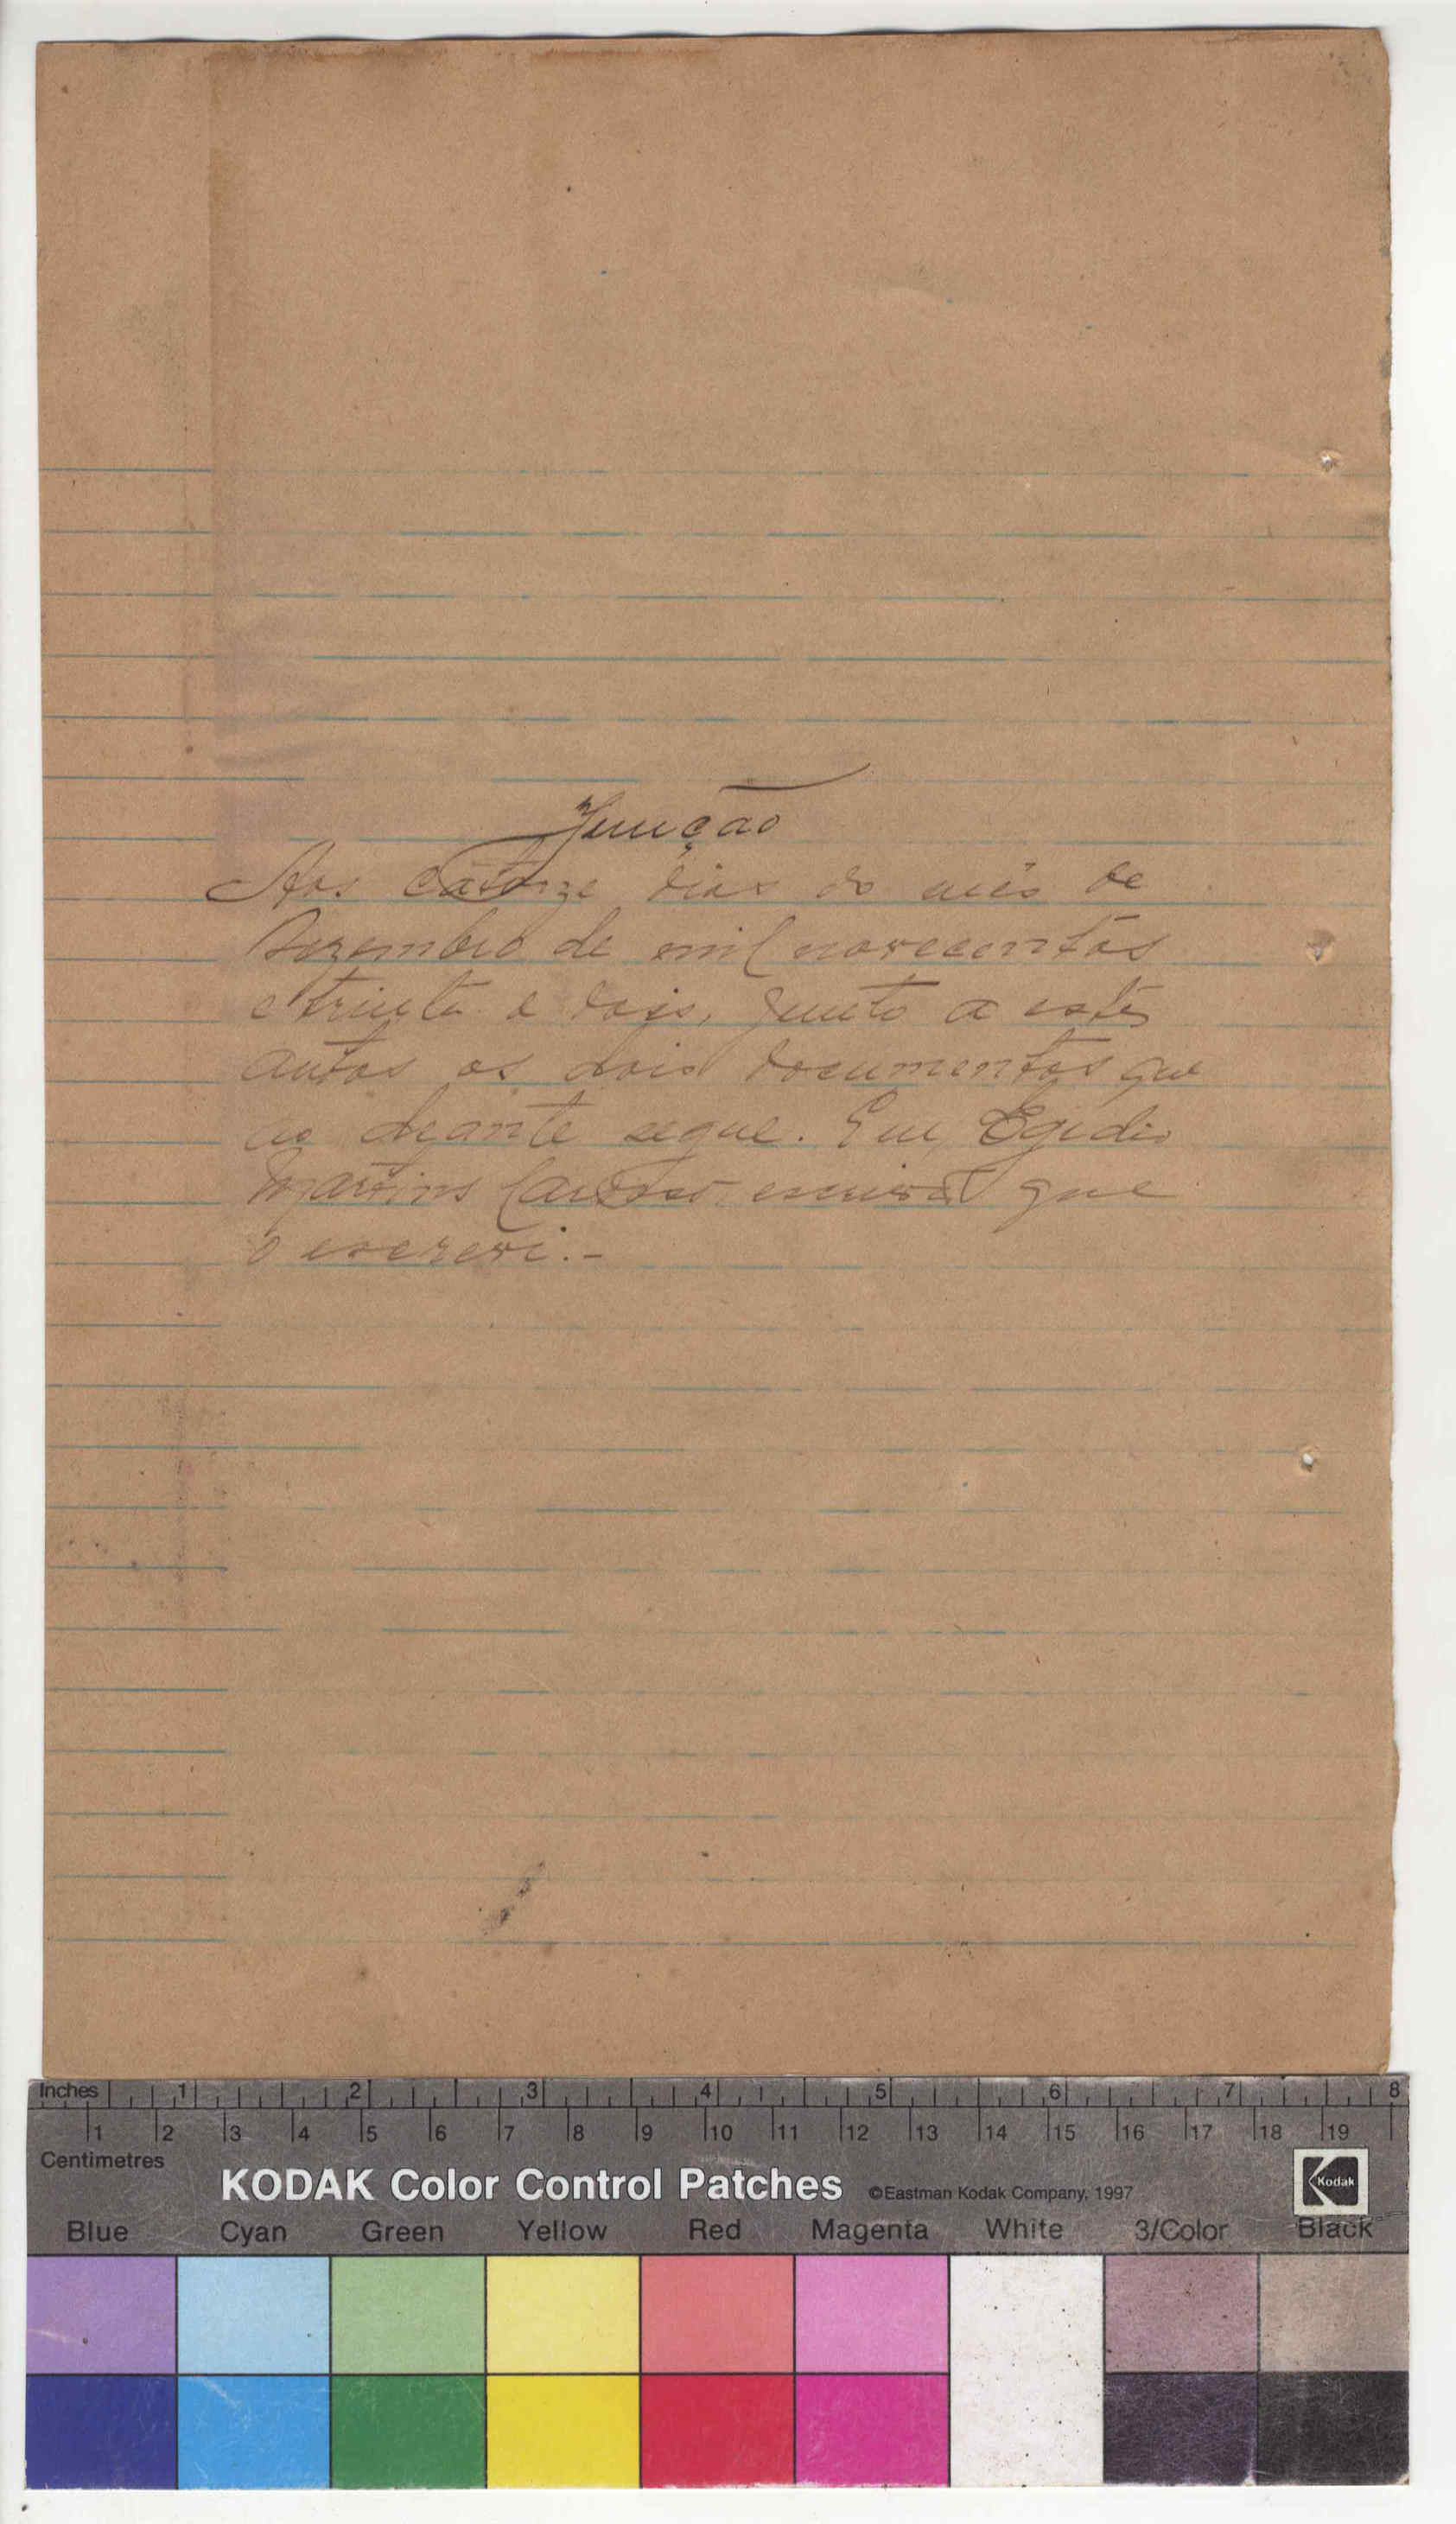 Junção
Aos catorze dias do mês de
Dezembro de mil novecentos
e trinta e dois, junto a estes
autos os dois documentos que
ao deante segue. Eu, Egidio
Martins Cardoso escrivão que
o escrevi.-
Inches 1 2 3 4 5 6 7 8
1 2 3 4 5 6 7 8 9 10 11 12 13 14 15 16 17 18 19
Centimetres
KODAK Color Control Patches ©Eastman Kodak Company, 1997 Kodak
Blue Cyan Green Yellow Red Magenta White 3/Color Black